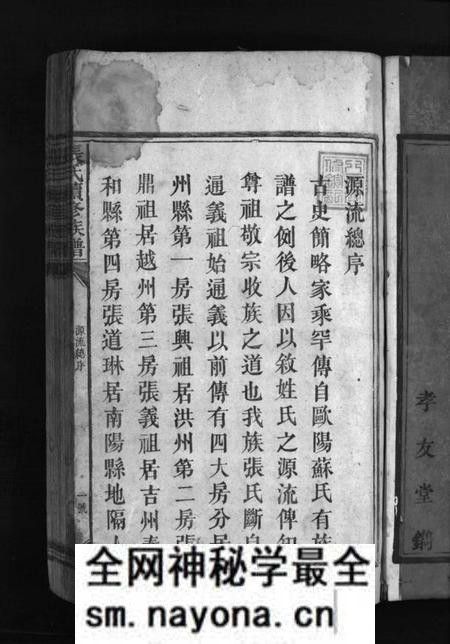 源流總序
古史簡略家乘罕傳自歐陽蘇氏有族
譜之例後人因以敘姓氏之源流俾知
尊祖敬宗收族之道也我族張氏斷自
通義祖始通義以前傳有四大房分居
州縣第一房張興祖居洪州第二房張
鼎祖居越州第三房張義祖居吉州泰
和縣第四房張道琳居南陽縣地隔人
張氏續修族譜
源流總序
一號
孝友堂鐫
全网神秘学最全
sm.nayona.cn